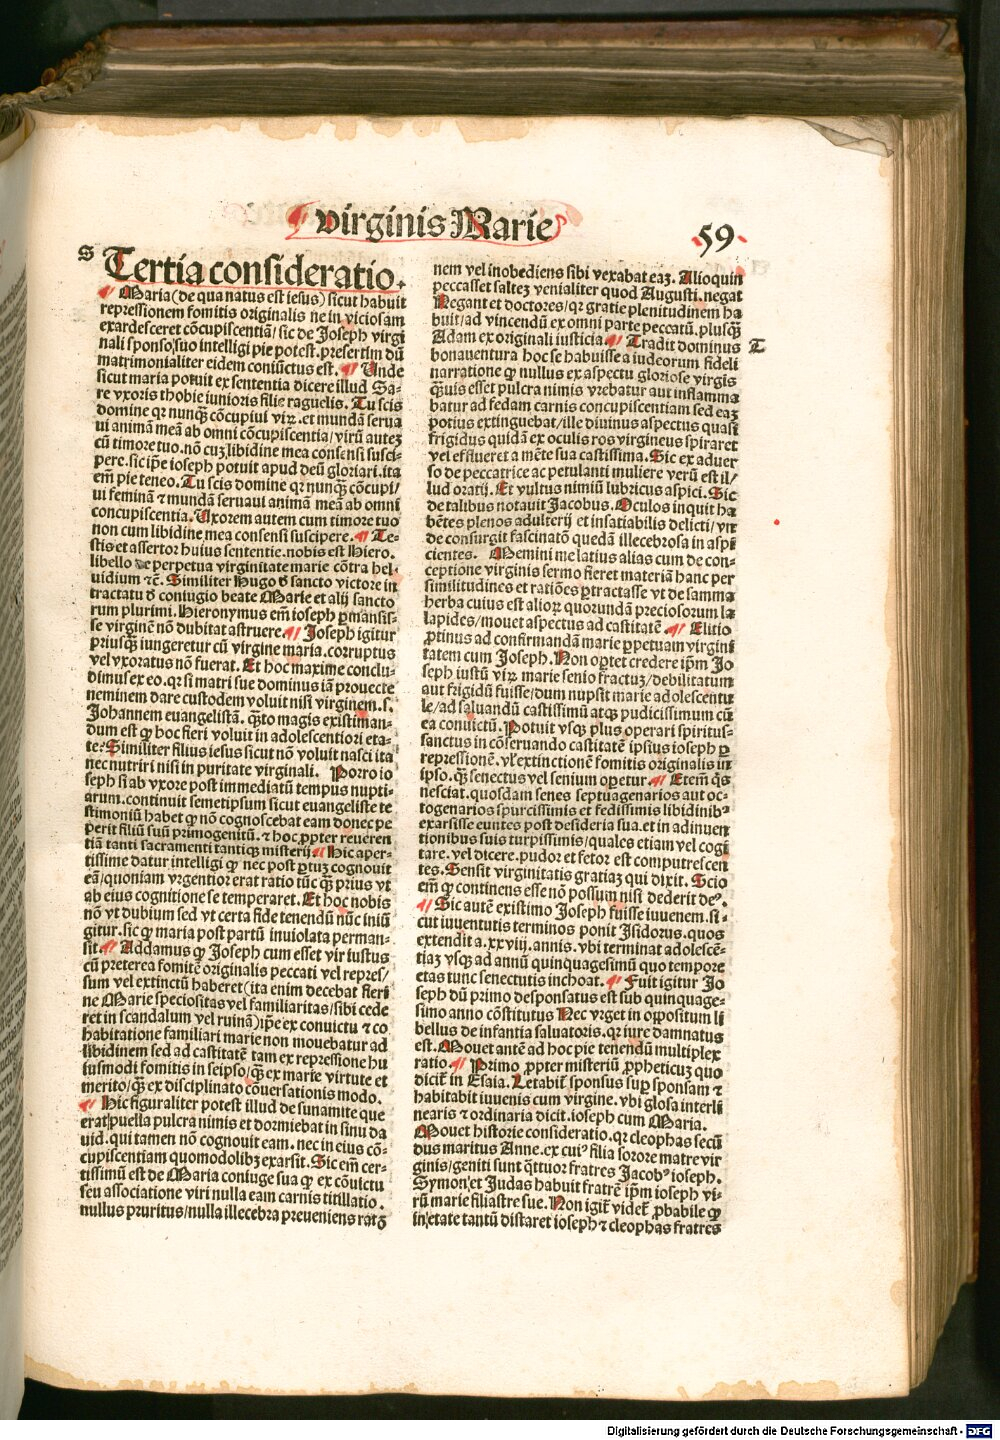 virginis Marie
59
S
Tertia consideratio.
¶ Maria (de qua natus est iesus) sicut habuit
repressionem fomitis originalis ne in viciosam
exardesceret cōcupiscentiā/ sic de Joseph virgi
nali sponso suo intelligi pie potest. presertim dū
matrimonialiter eidem coniūctus est. ¶ Unde
sicut maria potuit ex sententia dicere illud Sa-
re vxoris thobie iunioris filie raguelis. Tu scis
domine qꝛ nunqꝫ cōcupiui viꝝ. et mundā serua
ui animā meā ab omni cōcupiscentia/ virū auteꝫ
cū timore tuo. nō cuꝫ libidine mea consensi susci-
pere. sic ip̄e ioseph potuit apud deū gloriari. ita
em̄ pie teneo. Tu scis domine qꝛ nunqꝫ cōcupi/
ui feminā ⁊ mundā seruaui animā meā ab omni
concupiscentia. Uxorem autem cum timore tuo
non cum libidine mea consensi suscipere. ¶ Te-
stis et assertor huius sententie. nobis est Hiero.
libello de perpetua virginitate marie cōtra hel-
uidium ⁊c̄. Similiter Hugo d̄ sancto victore in
tractatu d̄ coniugio beate Marie et alij sancto
rum plurimi. Hieronymus em̄ ioseph ꝑmansis-
se virginē nō dubitat astruere. ¶ Joseph igitur
priusqꝫ iungeretur cū virgine maria. corruptus
vel vxoratus nō fuerat. Et hoc maxime conclu-
dimus ex eo. qꝛ si matri sue dominus iā prouecte
neminem dare custodem voluit nisi virginem. s.
Johannem euangelistā. q̄to magis existiman-
dum est qꝙ hoc fieri voluit in adolescentiori eta-
te? Similiter filius iesus sicut nō voluit nasci ita
nec nutriri nisi in puritate virginali. Porro io
seph si ab vxore post immediatū tempus nupti-
arum. continuit semetipsum sicut euangeliste te
stimoniū habet qꝙ nō cognoscebat eam donec pe
perit filiū suū primogenitū. ⁊ hoc ꝓpter reueren
tiā tanti sacramenti tantiqꝫ misterij ¶ Hic aper-
tissime datur intelligi qꝙ nec post ꝑtuꝫ cognouit
eā/ quoniam vrgentior erat ratio tūc qꝫ prius vt
ab eius cognitione se temperaret. Et hoc nobis
nō vt dubium sed vt certa fide tenendū nūc iniū
gitur. sic qꝙ maria post partū inuiolata perman-
sit. ¶ Addamus qꝙ Joseph cum esset vir iustus
cū preterea fomitē originalis peccati vel repres/
sum vel extinctū haberet (ita enim decebat fieri
ne Marie speciositas vel familiaritas/ sibi cede
ret in scandalum vel ruinā) ip̄e ex conuictu ⁊ co
habitatione familiari marie non mouebatur ad
libidinem sed ad castitatē tam ex repressione hu
iusmodi fomitis in seipso/ qꝫ ex marie virtute et
merito/ qꝫ ex disciplinato cōuersationis modo.
¶ Hic figuraliter potest illud de sunamite que
erat puella pulcra nimis et dormiebat in sinu da
uid. qui tamen nō cognouit eam. nec in eius cō-
cupiscentiam quomodolibꝫ exarsit. Sic em̄ cer-
tissimū est de Maria coniuge sua qꝙ ex cōuictu
seu associatione viri nulla eam carnis titillatio.
nullus pruritus/ nulla illecebra preueniens ratō
nem vel inobediens sibi vexabat eaꝫ. Alioquin
peccasset salteꝫ venialiter quod Augusti. negat
Negant et doctores/ qꝛ gratie plenitudinem ha
buit/ ad vincendū ex omni parte peccatū. plusqꝫ
Adam ex originali iusticia. ¶ Tradit dominus
T
bonauentura hoc se habuisse a iudeorum fideli
narratione qꝙ nullus ex aspectu gloriose virgis
qꝫuis esset pulcra nimis vrebatur aut inflamma
batur ad fedam carnis concupiscentiam sed eaꝫ
potius extinguebat/ ille diuinus aspectus quasi
frigidus quidā ex oculis ros virgineus spiraret
vel efflueret a mēte sua castissima. Sic ex aduer
so de peccatrice ac petulanti muliere verū est il/
lud oratij. Et vultus nimiū lubricus aspici. Sic
de talibus notauit Jacobus. Oculos inquit ha
bētes plenos adulterij et insatiabilis delicti/ vn̄
de consurgit fascinatō quedā illecebrosa in aspi
cientes. Memini me latius alias cum de con-
ceptione virginis sermo fieret materiā hanc per
similitudines et ratiōes ꝑtractasse vt de samma
herba cuius est alioꝝ quorundā preciosorum la
lapides/ mouet aspectus ad castitatē. ¶ Elitio
ꝓtinus ad confirmandā marie ꝑpetuam virgini
tatem cum Joseph. Non oꝑtet credere ip̄m Jo
seph iustū viꝝ marie senio fractuꝫ/ debilitatum
aut frigidū fuisse/ dum nupsit marie adolescentu
le/ ad saluandū castissimū atqꝫ pudicissimum cū
ea conuictū. Potuit vsqꝫ plus operari spiritus-
sanctus in cōseruando castitatē ipsius ioseph ꝑ
repressionē. vl' extinctionē fomitis originalis in
ipso. qꝫ senectus vel senium oꝑetur. ¶ Etem̄ q̄s
nesciat. quosdam senes septuagenarios aut oc-
togenarios spurcissimis et fedissimis libidinibꝰ
exarsisse euntes post desideria sua. et in adinuen
tionibus suis turpissimis/ quales etiam vel cogi
tare. vel dicere. pudor et fetor est computrescen
tes. Sensit virginitatis gratiaꝫ qui dixit. Scio
em̄ qꝙ continens esse nō possum nisi dederit deꝰ.
¶ Sic autē existimo Joseph fuisse iuuenem. si-
cut iuuentutis terminos ponit Isidorus. quos
extendit a. xxviij. annis. vbi terminat adolescē-
tiaꝫ vsqꝫ ad annū quinquagesimū quo tempore
etas tunc senectutis inchoat. ¶ Fuit igitur Jo
seph dū primo desponsatus est sub quinquage-
simo anno cōstitutus Nec vrget in oppositum li
bellus de infantia saluatoris. qꝛ iure damnatus
est. Mouet antē ad hoc pie tenendū multiplex
ratio. ¶ Primo ꝓpter misteriū ꝓpheticuꝫ quo
dicit̄ in Esaia. Letabit̄ sponsus suꝑ sponsam ⁊
habitabit iuuenis cum virgine. vbi glosa interli
nearis ⁊ ordinaria dicit. ioseph cum Maria.
Mouet historie consideratio. qꝛ cleophas secū
dus maritus Anne. ex cuiꝰ filia sorore matre vir
ginis/ geniti sunt q̄ttuor fratres Jacobꝰ ioseph.
Symon et Judas habuit fratrē ip̄m ioseph vi-
rū marie filiastre sue. Non igit̄ videt̄ ꝓbabile qꝙ
in etate tantū distaret ioseph ⁊ cleophas fratres
Digitalisierung gefördert durch die Deutsche Forschungsgemeinschaft - DFG